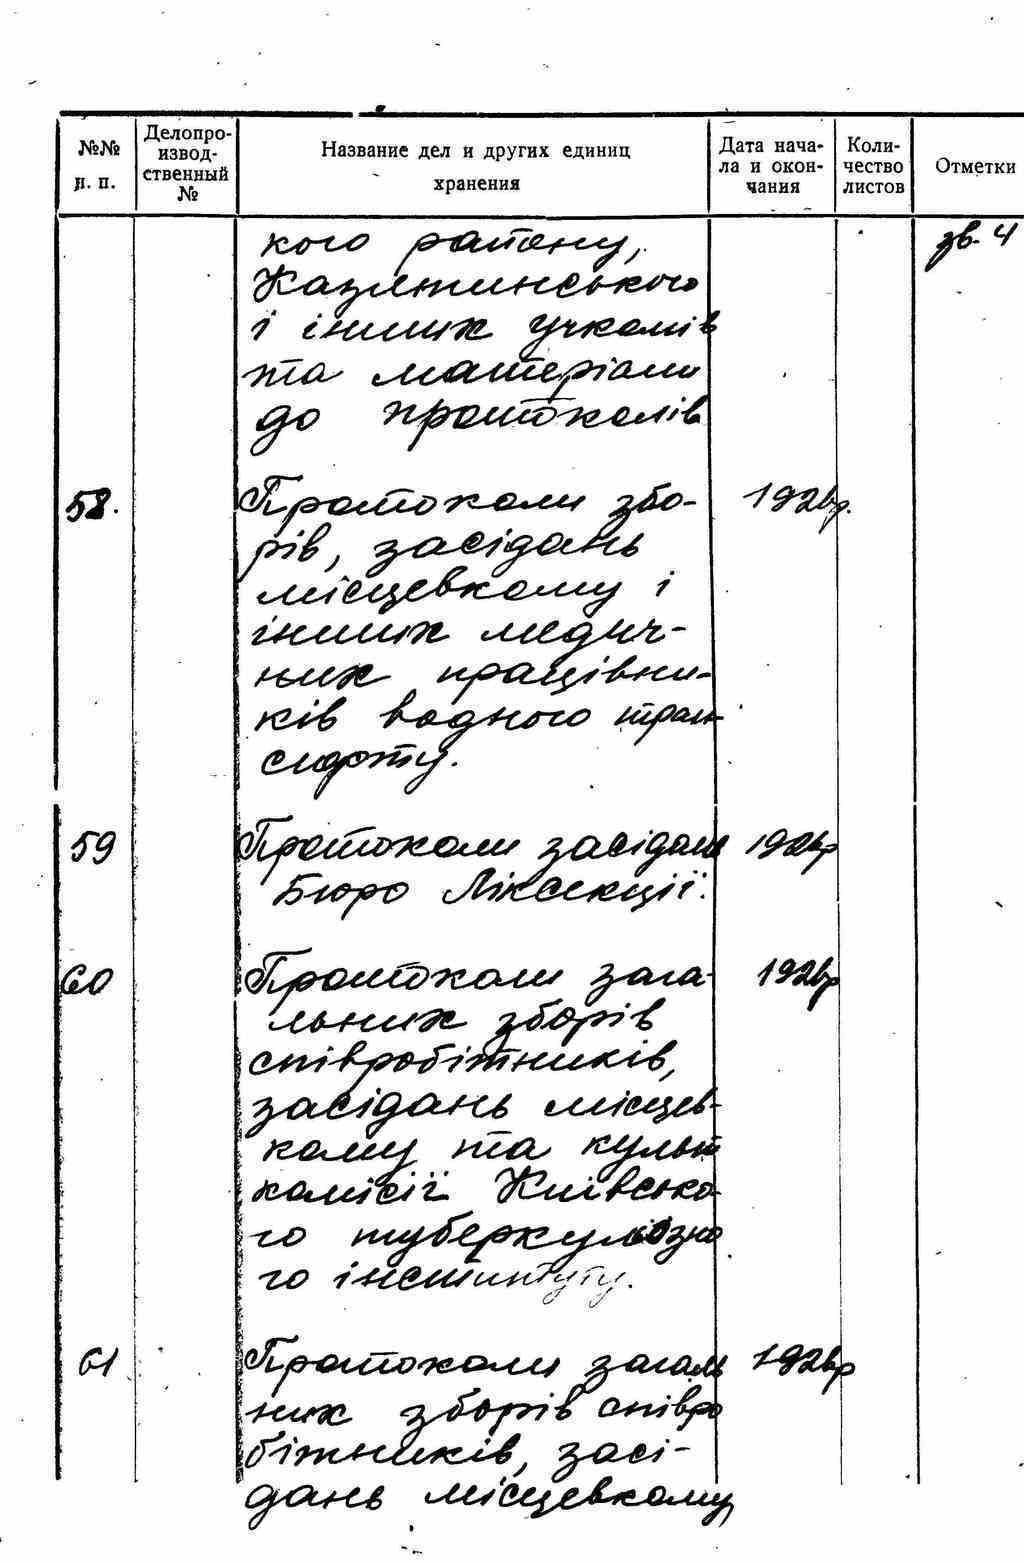 №№ п. п.
Делопроизводственный №
Название дел и других единиц хранения
Дата начала и окончания
Количество листов
Отметки
кого району,
зв. 4
Казятинського
і інших учкомів
та матеріали
до протоколів
58. Протоколи збо- 1926р.
рів, засідань
місцевкому і
інших медич-
них працівни-
ків водного тран
спорту.
59 Протоколи засідань 1926р
Бюро Ліксекції.
60 Протоколи зага- 1926р
льних зборів
співробітників,
засідань місцев-
кому та культ
комісії Київсько-
го туберкульозно
го інституту.
61 Протоколи загаль 1926р
них зборів співро
бітників, засі-
дань місцевкому,